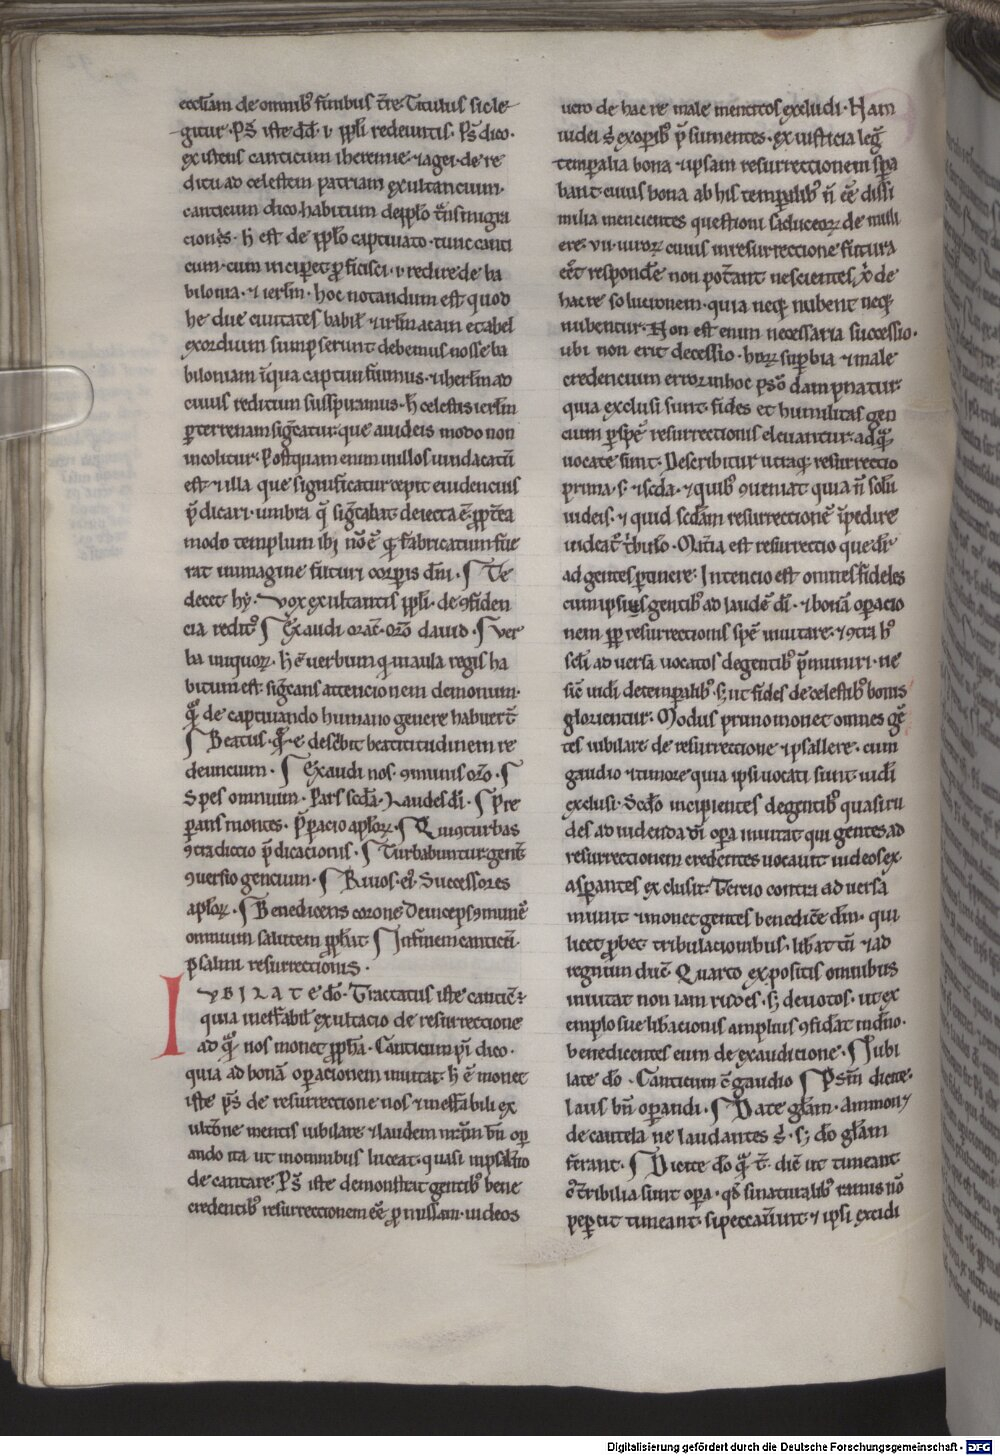 eccl̄iam de omnib⁹ finibus t̄re. Titulus sic le-
gitur. Ps̄ iste dd̄. ł ppl̄i redeuntis. Ps̄ dico.
existens canticum iheremie ⁊ agei. de re
ditu ad celestem patriam exultancium.
canticum dico habitum de pplo t̄nsmigra
cionis. h̄ est de pplo captiuato. tunc canti
cum. cum inciperet proficisci. ł redire de ba
bilonia. ⁊ ierlm̄. hoc notandum est quod
he due ciuitates babil̄ ⁊ irlm̄ a cain et abel
exordium sumpserunt debemus nosse ba
biloniam ī qua captiui fuimus. ⁊ iherlm̄ ad
cuius reditum suspiramus. h̄ celestis ierlm̄
p̄ terrenam siḡcatur. que a iudeis modo non
incolitur. Postquam enim in illos uindicatū
est ⁊ illa que significatur cepit euidencius
p̄dicari. umbra q̄ siḡcabat deiecta ē. ppt̄ea
modo templum ibi nō ē qd̄ fabricatum fue
rat in imagine futuri corporis dn̄i. Te
decet hy. vox exultantis ppl̄i. de ꝯfiden
cia redit⁹ Exaudi orat̄. oro dauid. Ver
ba iniquoꝝ. h̄ ē uerbum qd̄ in aula regis ha
bitum est. siḡcans attencionem demonum.
q̄ de captiuando humano genere habuer̄t
Beatus. q̄. e. describit beatitudinem re
deuncium. Exaudi nos. ꝯmunis oro.
Spes omnium. Pars sc̄da. Laudes dī. Pre
parans montes. P̄paracio apl̄oꝝ. Qui ꝯturbas
ꝯtradiccio p̄dicacionis. Turbabuntur gent̄
ꝯuersio gencium. Riuos. ei⁹. Successores
apl̄oꝝ. Benedicens corone. Deinceps ꝯmunē
omnium salutem pph̄at In finem cantici.
psalmi resurrectionis.
IVBILATE dō. Tractatus iste cantic̄.
quia ineffabil̄ exultacio de resurreccione
ad q̄ nos monet ppha. Canticum p̄i dico.
quia ad bonā operacionem inuitat. h̄ ē monet
iste ps̄ de resurreccione nos ⁊ ineffabili ex
ultōne mentis iubilare ⁊ laudem nr̄am bn̄ oper
ando ita ut in omnibus luceat. quasi in psalt̄io
decantare. Ps̄ iste demonstrat gentib⁹ bene
credentib⁹ resurreccionem eē promissam. iudeos
uero de hac re male mencitos excludi. Nam
iudei s; ex operib⁹ p̄sumentes. ex iusticia leḡ
temporalia bona ⁊ ipsam resurreccionem spera
bant. cuius bona ab his temporalib⁹ n̄ eē dissi
milia mencientes questioni saduceoꝝ de muli
ere. vii. uiroꝝ cuius in resurreccione futura
eēt respondere non poterant nescientes. x̄ de
hac re solucionem. quia neqꝫ nubent neqꝫ
nubentur. Non est enim necessaria successio.
ubi non erit decessio. hoꝝ superbia ⁊ male
credencium error in hoc psō dampnatur
quia exclusi sunt. fides et humilitas gen
cium p̄ spē resurrectionis eleuantur. ad q̄
uocate sunt. Describitur utraqꝫ resurreccio
prima. s. ⁊ sc̄da. ⁊ quib⁹ ꝯueniat quia n̄ soli
iudeis. ⁊ quid sc̄dam resurreccionē īpedire
uideat̄ t̄bulo. Mat̄ia est resurreccio que dr̄
ad gentes pertinere. Intencio est omnes fideles
cum ipsius gentib⁹ ad laudē dī. ⁊ bonā operacio
nem ppt̄ resurreccionis spē inuitare. ⁊ ꝯtra h⁹
sc̄li aduersa uocatos de gentib⁹ p̄muniri. ne
sic̄ iudī de temporalib⁹. s; ut fides de celestib⁹ bonis
glorientur. Modus primo monet omnes gē
tes iubilare de resurreccione ⁊ psallere. cum
gaudio ⁊ timore quia ipsi uocati sunt iudī
exclusi. Secdo incipientes de gentib⁹ quasi ru
des ad uidenda dī opera inuitat qui gentes ad
resurreccionem credentes uocauit iudeos ex
asperantes exclusit. Tercio contra aduersa
munit ⁊ monet gentes benedicē dn̄m. qui
licet probet tribulacionibus. liberat tn̄ ⁊ ad
regnum ducit. Quarto expositis omnibus
inuitat non iam rudes. s; deuotos. ut ex
emplo sue liberacionis amplius ꝯfidant in dn̄o.
benedicentes eum de exaudicione. Iubi
late dō. Canticum ē gaudio Psm̄ dicite.
laus bn̄ operandi. Date glām. Ammonꝫ
de cautela ne laudantes s; dō glām
ferant. Dicite dō q̄ t̄. dic̄ ut timeant
q̄ t̄ribilia sunt opera. qd̄ si naturalib⁹ ramis nō
pepercit timeant. si peccauerint ⁊ ipsi excidi
Digitalisierung gefördert durch die Deutsche Forschungsgemeinschaft - DFG